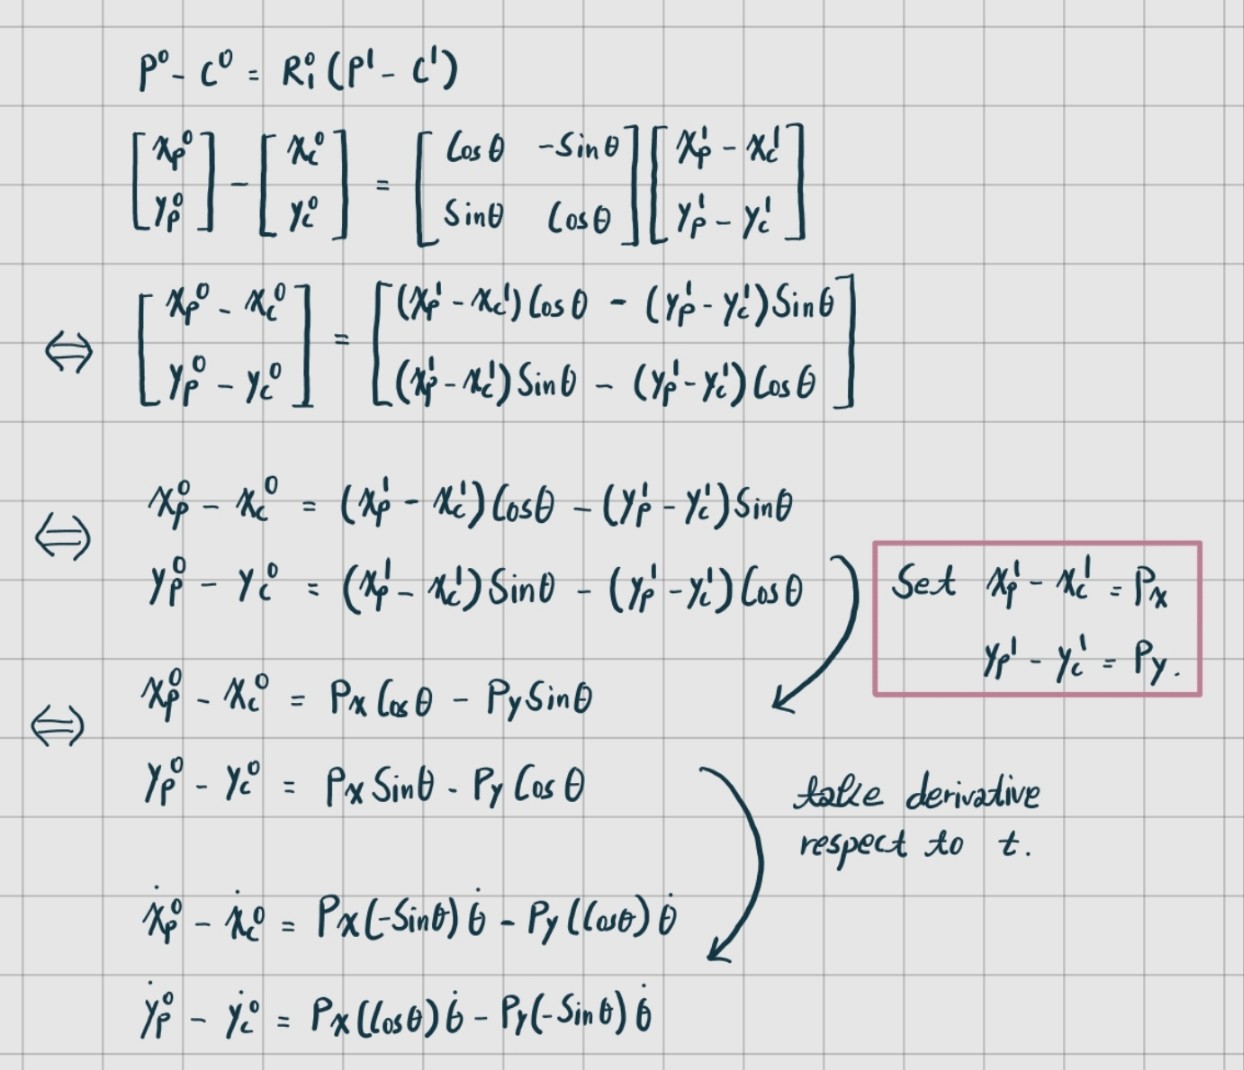 P⁰ - C⁰ = R₁⁰ (P¹ - C¹)
[xₚ⁰ ; yₚ⁰] - [x_c⁰ ; y_c⁰] = [Cosθ -Sinθ ; Sinθ Cosθ] [xₚ¹ - x_c¹ ; yₚ¹ - y_c¹]
⇔ [xₚ⁰ - x_c⁰ ; yₚ⁰ - y_c⁰] = [(xₚ¹ - x_c¹)Cosθ - (yₚ¹ - y_c¹)Sinθ ; (xₚ¹ - x_c¹)Sinθ - (yₚ¹ - y_c¹)Cosθ]
⇔ xₚ⁰ - x_c⁰ = (xₚ¹ - x_c¹)Cosθ - (yₚ¹ - y_c¹)Sinθ
yₚ⁰ - y_c⁰ = (xₚ¹ - x_c¹)Sinθ - (yₚ¹ - y_c¹)Cosθ
Set xₚ¹ - x_c¹ = Pₓ
yₚ¹ - y_c¹ = P_y.
⇔ xₚ⁰ - x_c⁰ = Pₓ Cosθ - P_y Sinθ
yₚ⁰ - y_c⁰ = Pₓ Sinθ - P_y Cosθ
take derivative
respect to t.
ẋₚ⁰ - ẋ_c⁰ = Pₓ(-Sinθ)θ̇ - P_y(Cosθ)θ̇
ẏₚ⁰ - ẏ_c⁰ = Pₓ(Cosθ)θ̇ - P_y(-Sinθ)θ̇